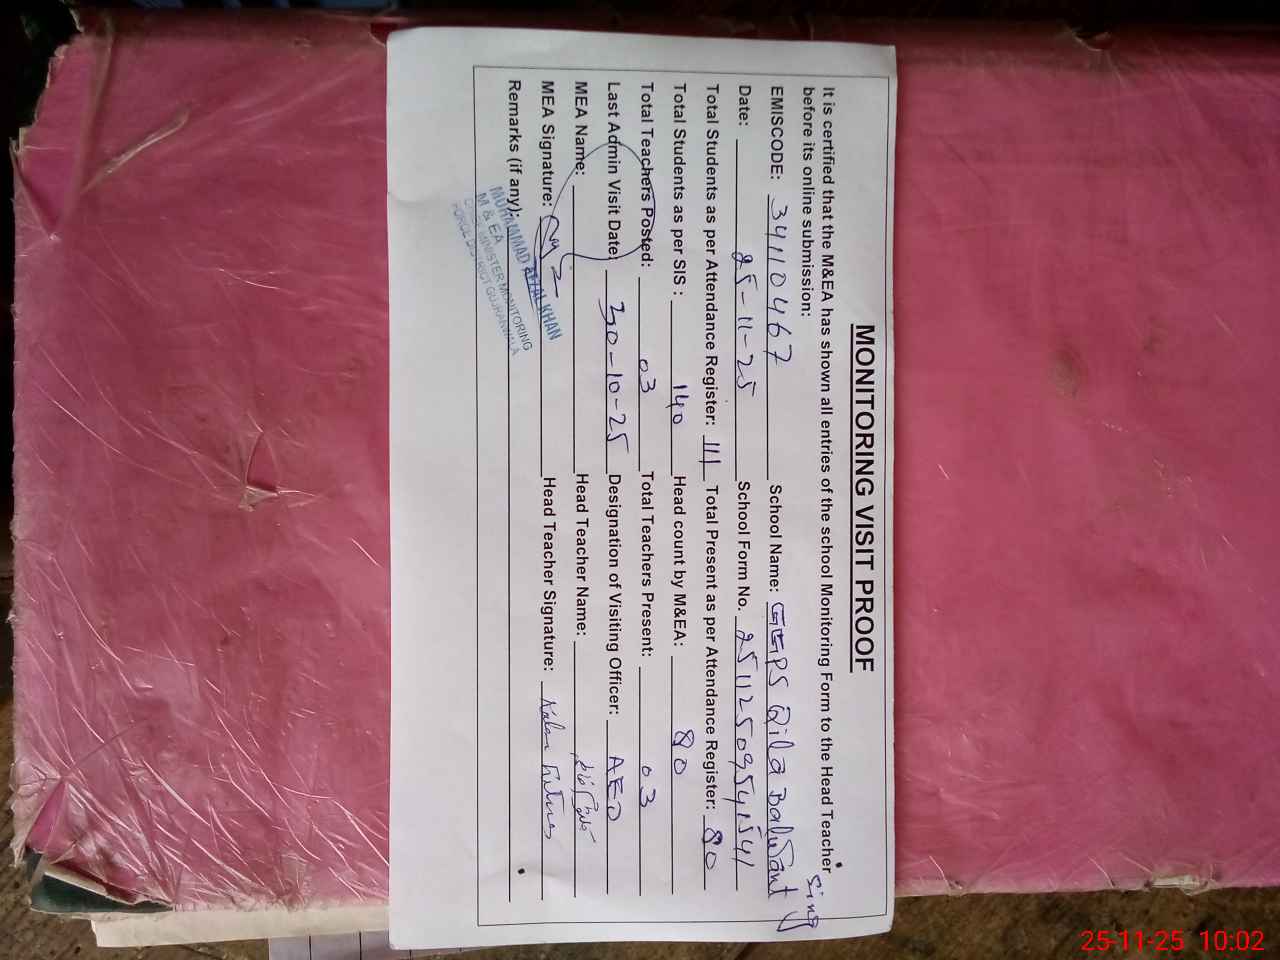 MONITORING VISIT PROOF
It is certified that the M&EA has shown all entries of the school Monitoring Form to the Head Teacher
before its online submission:
EMISCODE: 34110467 School Name: GGPS Qila Balwant Sing
Date: 25-11-25 School Form No. 25112509541541
Total Students as per Attendance Register: 111 Total Present as per Attendance Register: 80
Total Students as per SIS : 140 Head count by M&EA: 80
Total Teachers Posted: 03 Total Teachers Present: 03
Last Admin Visit Date: 30-10-25 Designation of Visiting Officer: AEO
MEA Name: Head Teacher Name:
MEA Signature: Head Teacher Signature:
Remarks (if any):
MUHAMMAD AFZAL KHAN
M & EA
CHIEF MINISTER MONITORING
FORCE DISTRICT GUJRANWALA
25-11-25 10:02